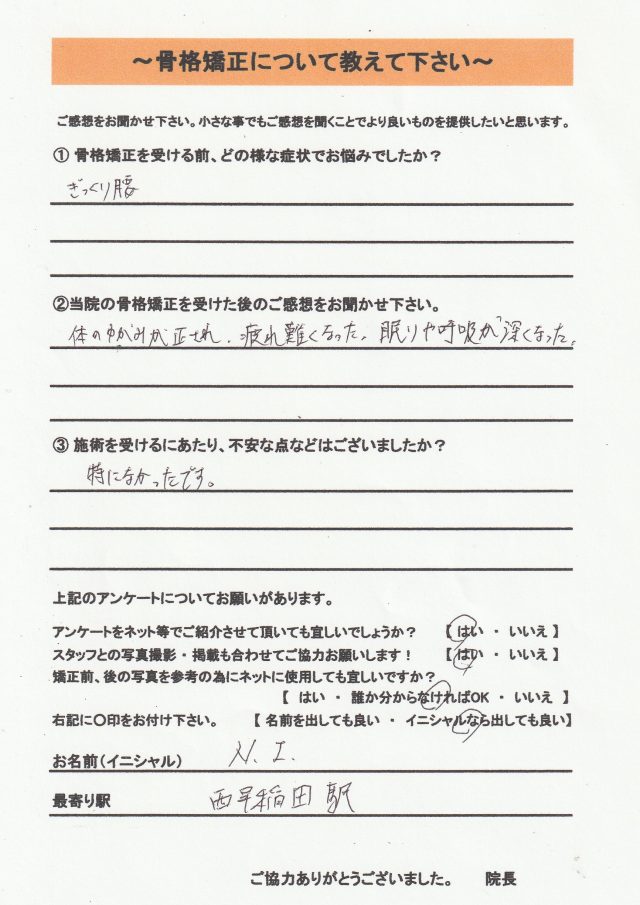 ～骨格矯正について教えて下さい～
ご感想をお聞かせ下さい。小さな事でもご感想を聞くことでより良いものを提供したいと思います。
① 骨格矯正を受ける前、どの様な症状でお悩みでしたか？
ぎっくり腰
②当院の骨格矯正を受けた後のご感想をお聞かせ下さい。
体のゆがみが正され、疲れ難くなった。眠りや呼吸が深くなった。
③ 施術を受けるにあたり、不安な点などはございましたか？
特になかったです。
上記のアンケートについてお願いがあります。
アンケートをネット等でご紹介させて頂いても宜しいでしょうか？ 【 はい ・ いいえ 】
スタッフとの写真撮影・掲載も合わせてご協力お願いします！ 【 はい ・ いいえ 】
矯正前、後の写真を参考の為にネットに使用しても宜しいですか？
【 はい ・ 誰か分からなければOK ・ いいえ 】
右記に〇印をお付け下さい。 【 名前を出しても良い ・ イニシャルなら出しても良い】
お名前（イニシャル） N. I.
最寄り駅 西早稲田駅
ご協力ありがとうございました。 院長